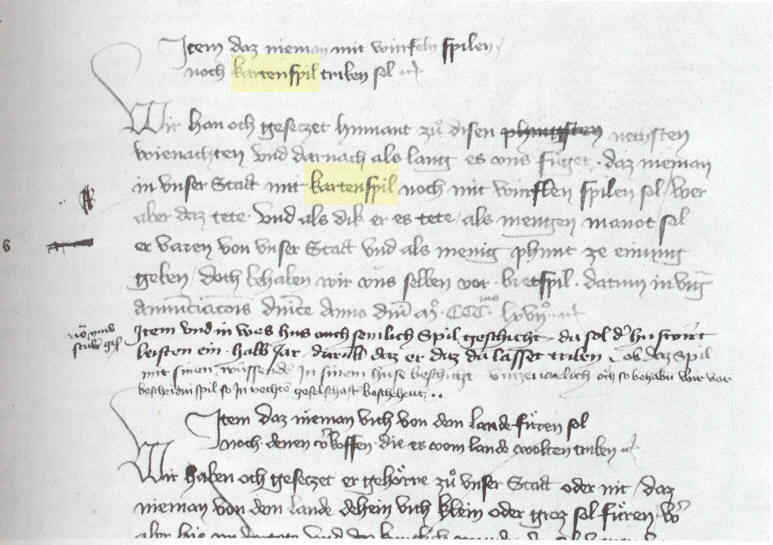 Item daz nieman mit würfeln spilen
noch kartenspil triben sol
Wir han och gesetzet hinnant zů disen phingsten nechsten
wienachten vnd darnach als lang es vns füget. daz nieman
in vnser Statt mit kartenspil noch mit würflen spilen sol / wer
aber daz tete. Vnd als dik er es tete / als mengen manot sol
er varen von vnser Statt vnd als menig phunt ze einung
geben / doch behaben wir vns selben vor. bretspil. datum in vig
annunciacois dnice Anno dni M. CCC lxvii
Item vnd in wes hus ouch semlich Spil geschicht. da sol d'
leisten ein. halb Jar. darumb daz er daz da lasset triben ob daz spil
mit sinem wüssende In sinem huse beschicht och so behaben wir vor
bescheiden spil so in rechter geselschaft
Item daz nieman vich von dem lande füren sol
noch denen v'koffen. die es vom lande wolten triben
Wir haben och gesetzet er gehörre zů vnser Statt oder nit / daz
nieman von dem lande dehein vich klein oder groz sol füren.
6